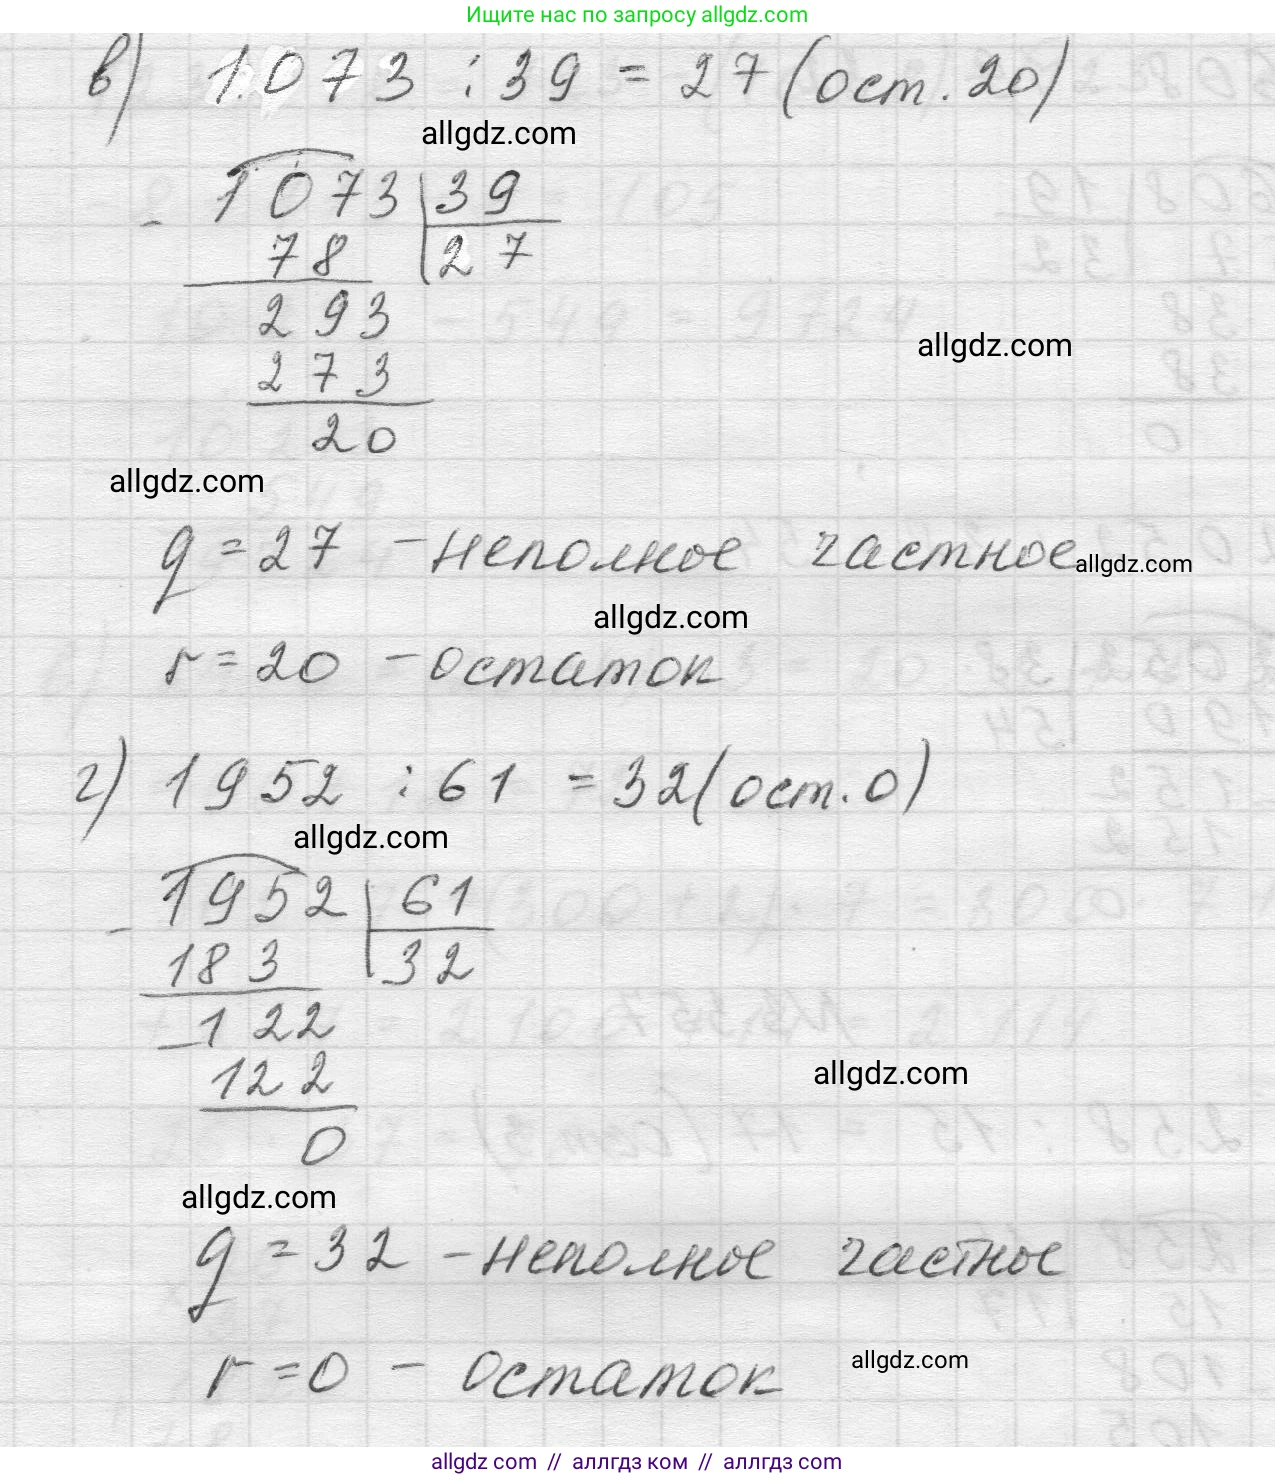 Ищите нас по запросу allgdz.com
в) 1073 : 39 = 27 (ост. 20)
allgdz.com
- 1073 | 39
78 | 27
293
273
20
allgdz.com
allgdz.com
q = 27 – неполное частное
allgdz.com
allgdz.com
r = 20 – остаток
г) 1952 : 61 = 32 (ост. 0)
allgdz.com
- 1952 | 61
183 | 32
- 122
122
0
allgdz.com
allgdz.com
q = 32 – неполное частное
r = 0 – остаток
allgdz.com
allgdz com // аллгдз ком // аллгдз com